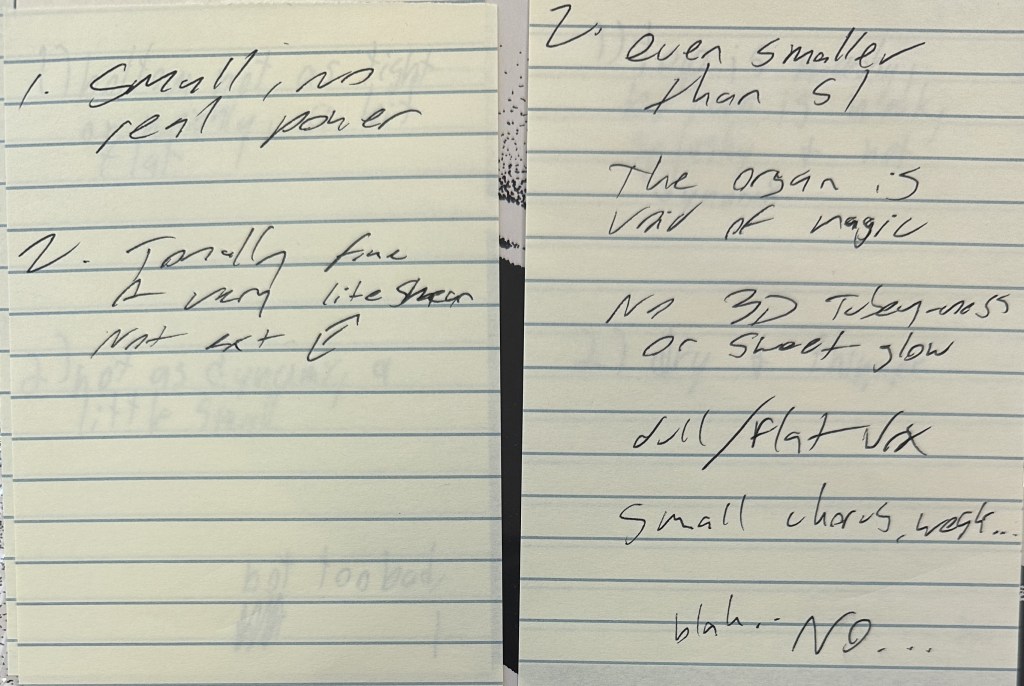 1. Small, no
real power
2. Tonally fine
A very lite sheen
Not ext
2.
even smaller
than S1
The organ is
void of magic
No 3D Tubey-ness
or sweet glow
dull/flat vox
Small chorus, weak...
blah.. NO...